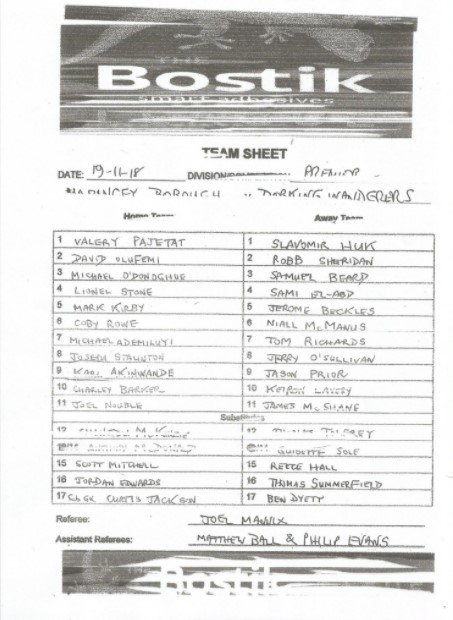 THE
Bostik
smart adhesives
TEAM SHEET
DATE: 19-11-18 DIVISION PREMIER
HARINGEY BOROUGH v DORKING WANDERERS
Home Team Away Team
1 VALERY PAJETAT 1 SLAVOMIR HUK
2 DAVID OLUFEMI 2 ROBB SHERIDAN
3 MICHAEL O'DONOGHUE 3 SAMUEL BEARD
4 LIONEL STONE 4 SAMI EL-ABD
5 MARK KIRBY 5 JEROME BECKLES
6 COBY ROWE 6 NIALL McMANUS
7 MICHAEL ADEMILUYI 7 TOM RICHARDS
8 JOSEPH STAUNTON 8 JERRY O'SULLIVAN
9 AKINWANDE 9 JASON PRIOR
10 CHARLEY BARKER 10 KEIRON LAVERY
11 JOEL NOUBLE 11 JAMES McSHANE
Substitutes
12 12
GUISEPPE SOLE
15 SCOTT MITCHELL 15 REECE HALL
16 JORDAN EDWARDS 16 THOMAS SUMMERFIELD
17 CURTIS JACKSON 17 BEN DYETT
Referee: JOEL MANNIX
Assistant Referees: MATTHEW BALL & PHILIP EVANS
Bostik